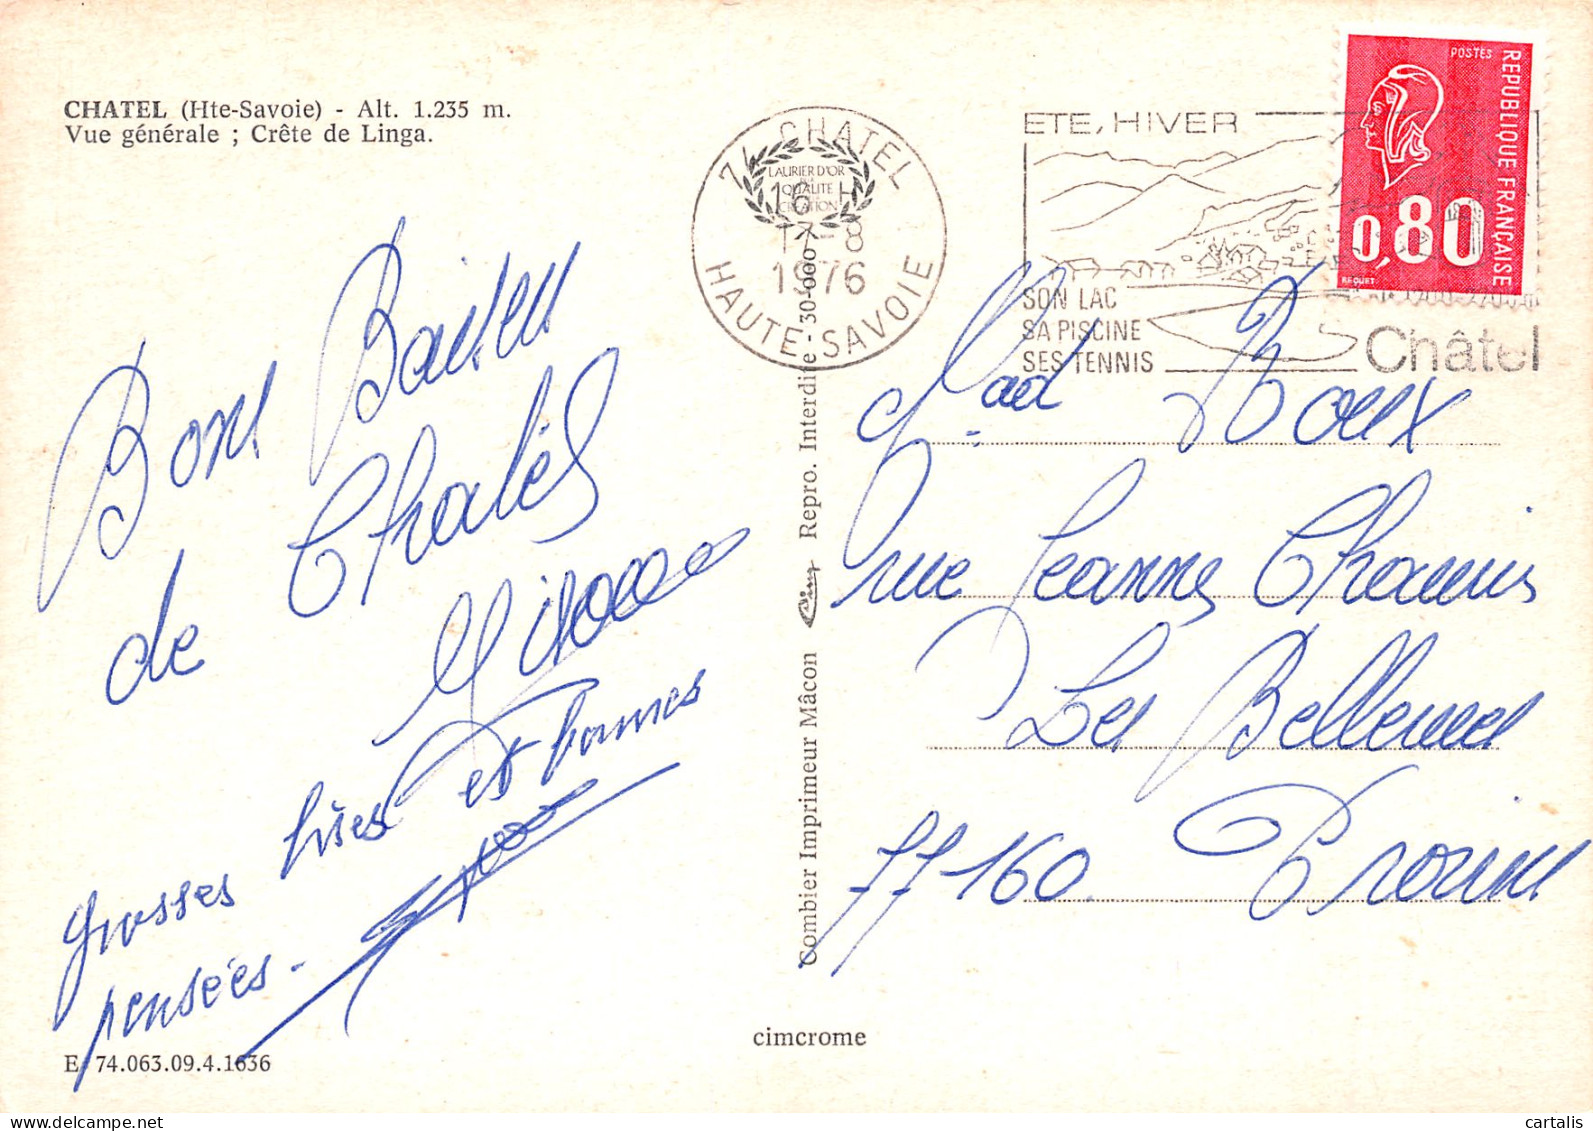 CHATEL (Hte-Savoie) - Alt. 1.235 m.
Vue générale ; Crête de Linga.
74 CHATEL
LAURIER D'OR
QUALITE
CREATION
16 H
17-8
1976
HAUTE-SAVOIE
ETE, HIVER
SON LAC
SA PISCINE
SES TENNIS
Châtel
POSTES
REPUBLIQUE FRANÇAISE
0,80
BEQUET
Bons Baisers
de Châtel
grosses bises et bonnes
pensées.
Mad Roux
rue Jeanne
Les
77160. Provins
Combier Imprimeur Mâcon Cim Repro. Interdite - 30-000
cimcrome
E 74.063.09.4.1636
cartalis
www.delcampe.net